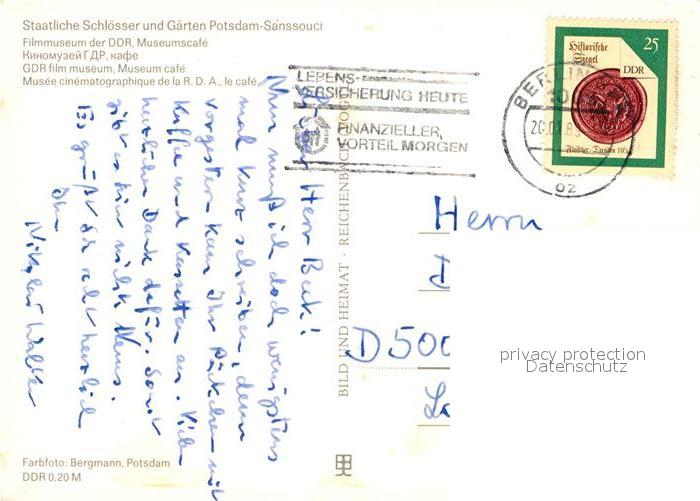 Staatliche Schlösser und Gärten Potsdam-Sanssouci
Filmmuseum der DDR, Museumscafé
Киномузей ГДР, кафе
GDR film museum, Museum café
Musée cinématographique de la R. D. A., le café
LEBENS-
VERSICHERUNG HEUTE
FINANZIELLER
VORTEIL MORGEN
BERLIN
Historische
Siegel
25
DDR
Herr Beck!
Nun muß ich doch wenigstens
mal kurz schreiben, denn
vorgestern kam Ihr Päckchen mit
Kaffee und Kassetten an. Vielen
herzlichen Dank dafür. Sonst
gibt es hier nichts Neues.
Es grüßt Sie recht herzlich
Ihr
Nikolaus Walter
BILD UND HEIMAT · REICHENBACH
Herrn
D 500
privacy protection
Datenschutz
Farbfoto: Bergmann, Potsdam
DDR 0,20 M